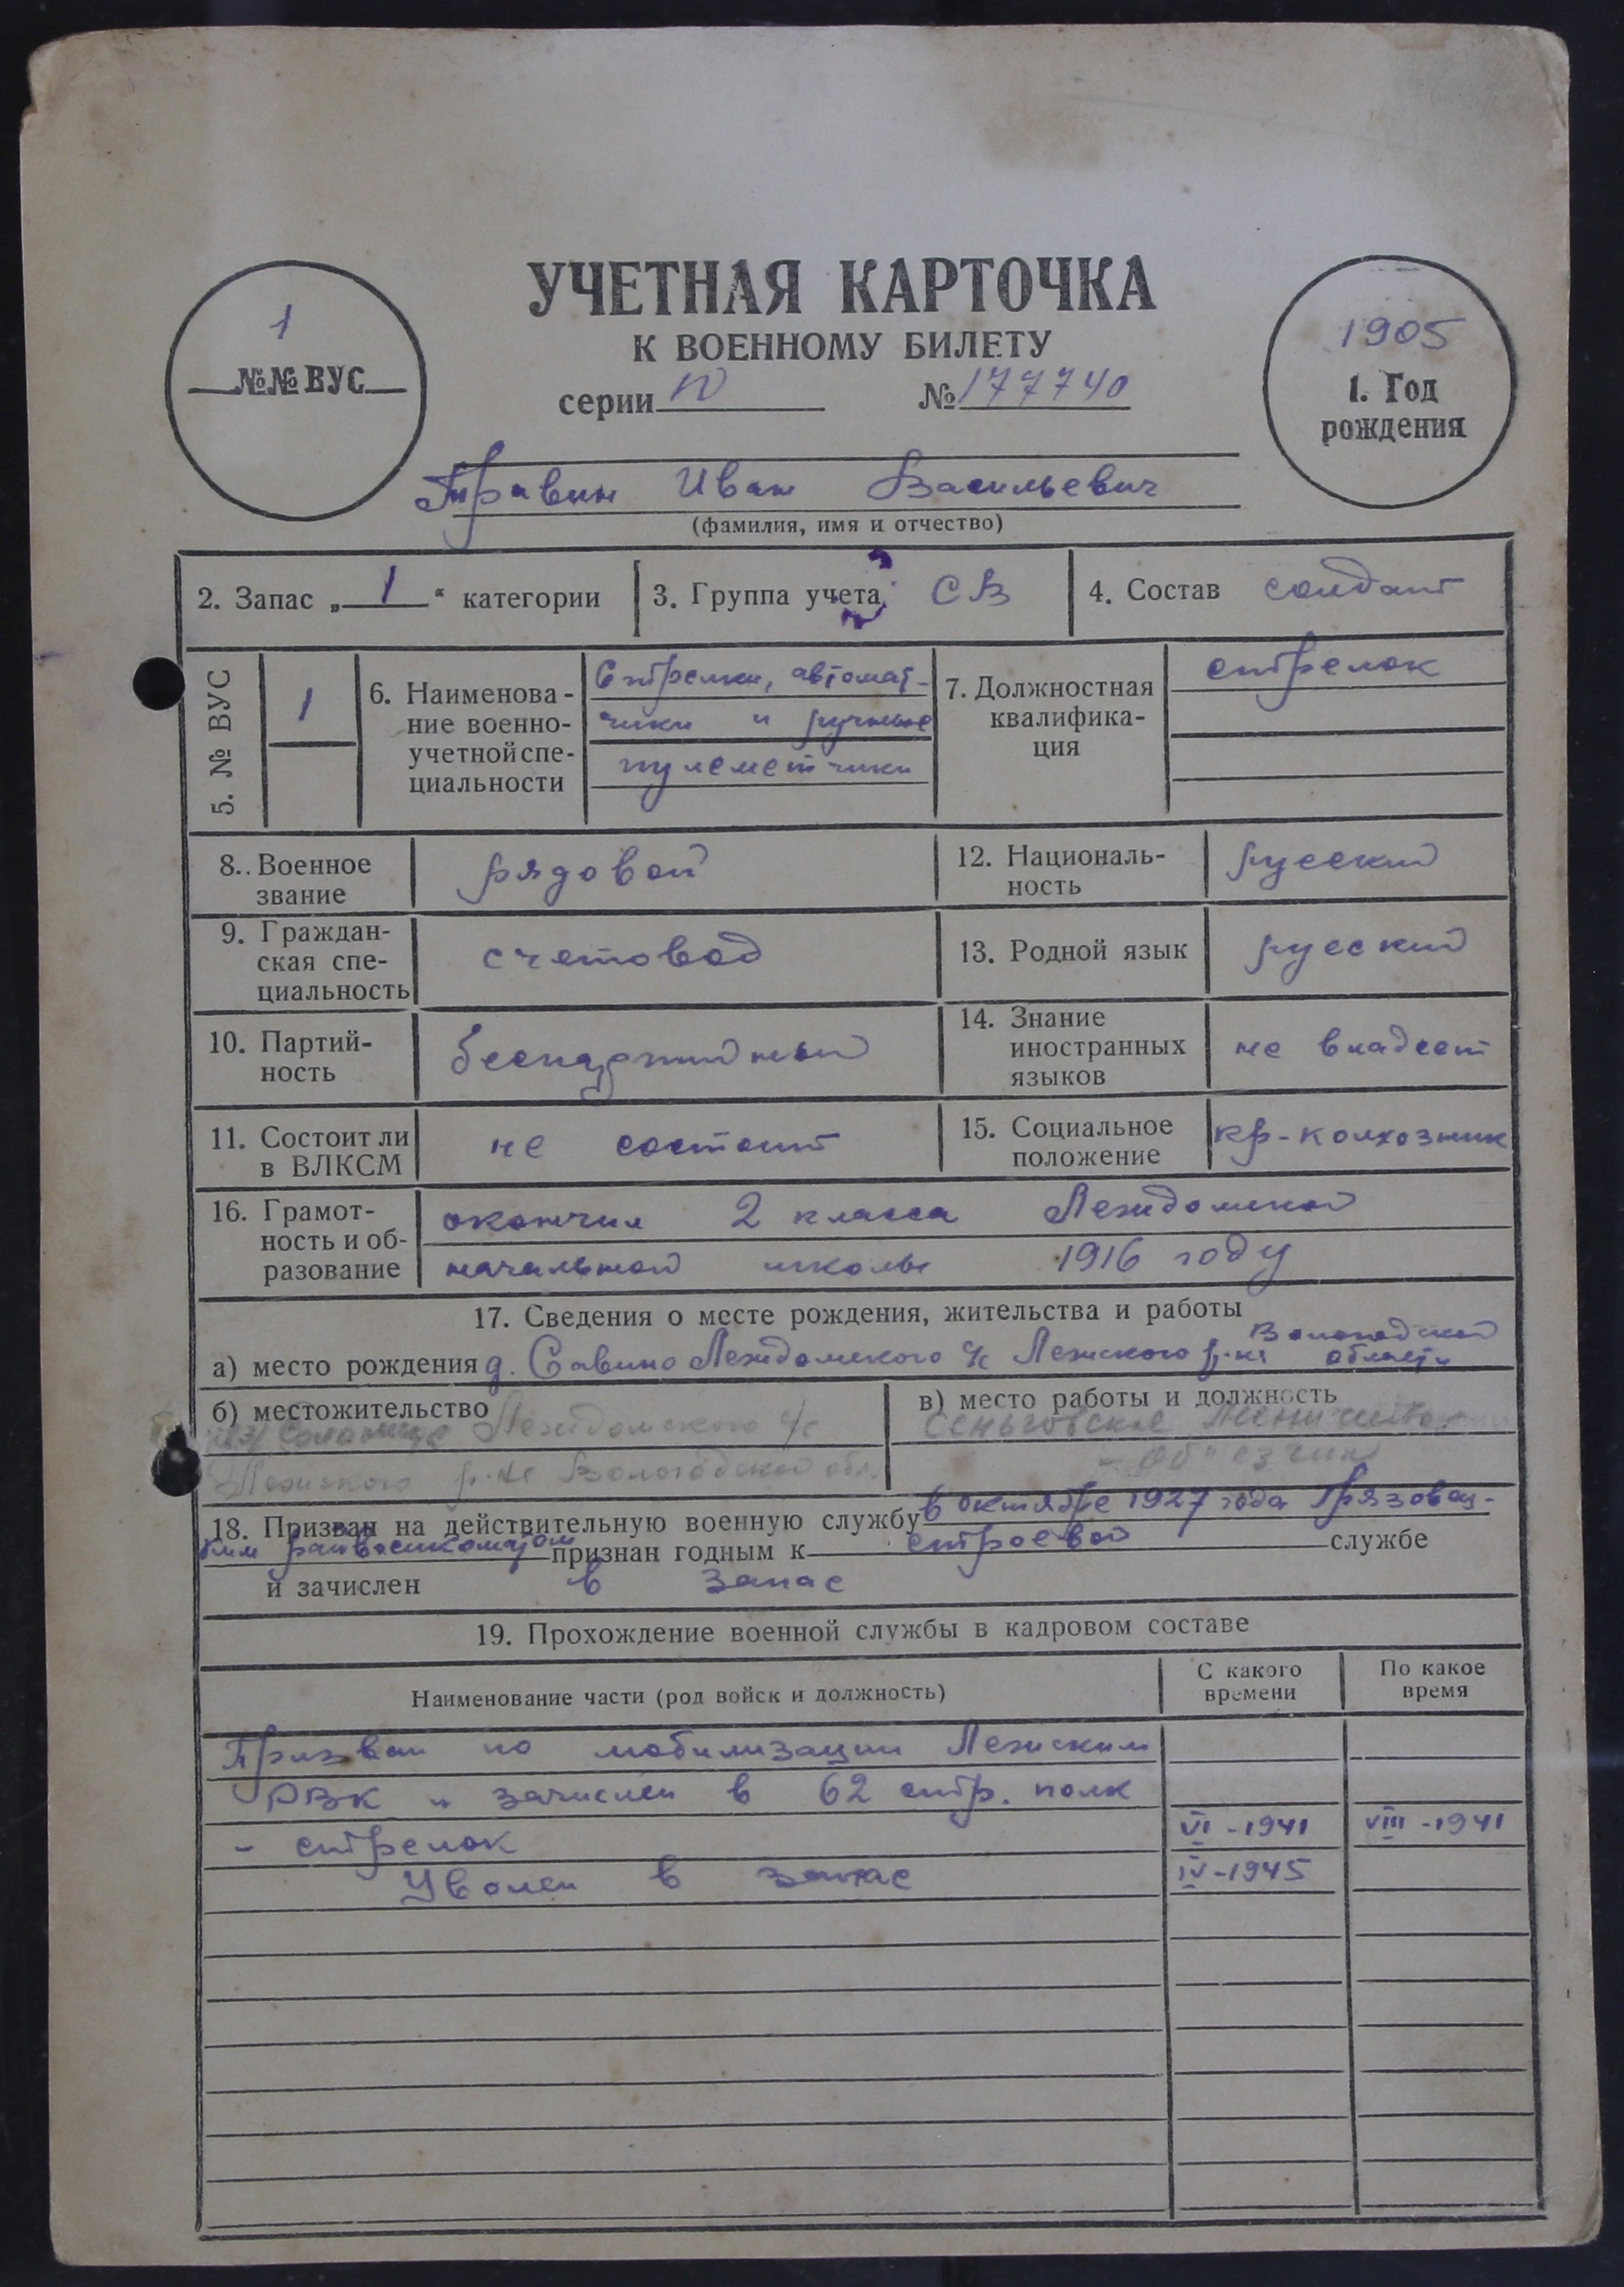 УЧЕТНАЯ КАРТОЧКА
К ВОЕННОМУ БИЛЕТУ
1
№№ ВУС
серии IV № 177740
1905
1. Год
рождения
Травин Иван Васильевич
(фамилия, имя и отчество)
2. Запас „1“ категории
3. Группа учета СВ
4. Состав солдат
5. № ВУС
1
6. Наименова-
ние военно-
учетной спе-
циальности
Стрелки, автомат-
чики и ручные
пулеметчики
7. Должностная
квалифика-
ция
стрелок
8. Военное
звание
рядовой
12. Националь-
ность
русский
9. Граждан-
ская спе-
циальность
счетовод
13. Родной язык
русский
10. Партий-
ность
беспартийный
14. Знание
иностранных
языков
не владеет
11. Состоит ли
в ВЛКСМ
не состоит
15. Социальное
положение
кр-колхозник
16. Грамот-
ность и об-
разование
окончил 2 класса Леждомской
начальной школы 1916 году
17. Сведения о месте рождения, жительства и работы
а) место рождения д. Савино Леждомского с/с Лежского р-на Вологодской
области
б) местожительство
Леждомского с/с
Лежского р-на Вологодской обл.
в) место работы и должность
Сеньговское
- объездчик
18. Призван на действительную военную службу в октябре 1927 года Грязовец-
ким райвоенкоматом признан годным к строевой службе
и зачислен в запас
19. Прохождение военной службы в кадровом составе
Наименование части (род войск и должность)
С какого
времени
По какое
время
Призван по мобилизации Лежским
РВК и зачислен в 62 стр. полк
- стрелок VI-1941 VIII-1941
Уволен в запас IV-1945